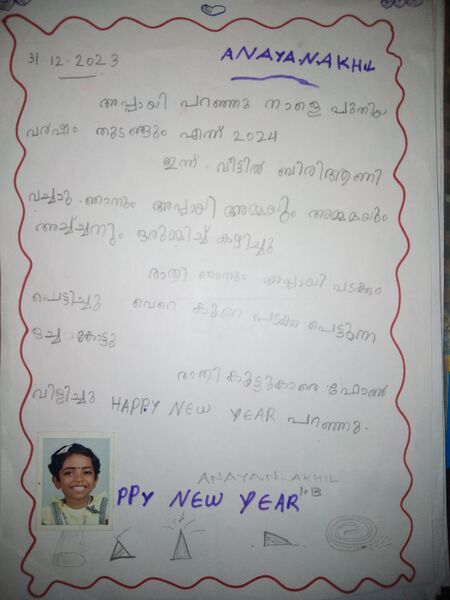 31.12.2023 ANAYANAKHIL
അപ്പായി പറഞ്ഞു നാളെ പുതിയ
വർഷം തുടങ്ങും എന്ന് 2024
ഇന്ന് വീട്ടിൽ ബിരിആണി
വച്ചു ഞാനും അപ്പായി അമ്മയും അമ്മമയും
അച്ച്ചനും ഒരുമ്മിച്ച് കഴിച്ചു
രാത്രി ഞാനും അപ്പായി പടക്കം
പൊട്ടിച്ചു വെറെ കുറെ പടക്ക പെട്ടുന്ന
കേട്ടു
രാതി കൂട്ടുകാരെ ഫോൺ
വിളിച്ചു HAPPY NEW YEAR പറഞ്ഞു.
ANAYA.N.AKHIL
1B
PPY NEW YEAR